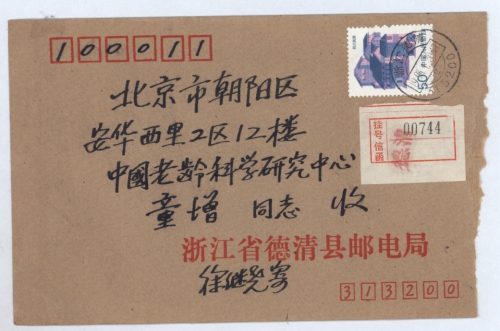 100011
北京市朝阳区
安华西里2区12楼
中國老龄科学研究中心
童增 同志 收
浙江省德清县邮电局
徐继尧寄
313200
50
挂号信函
00744
313200